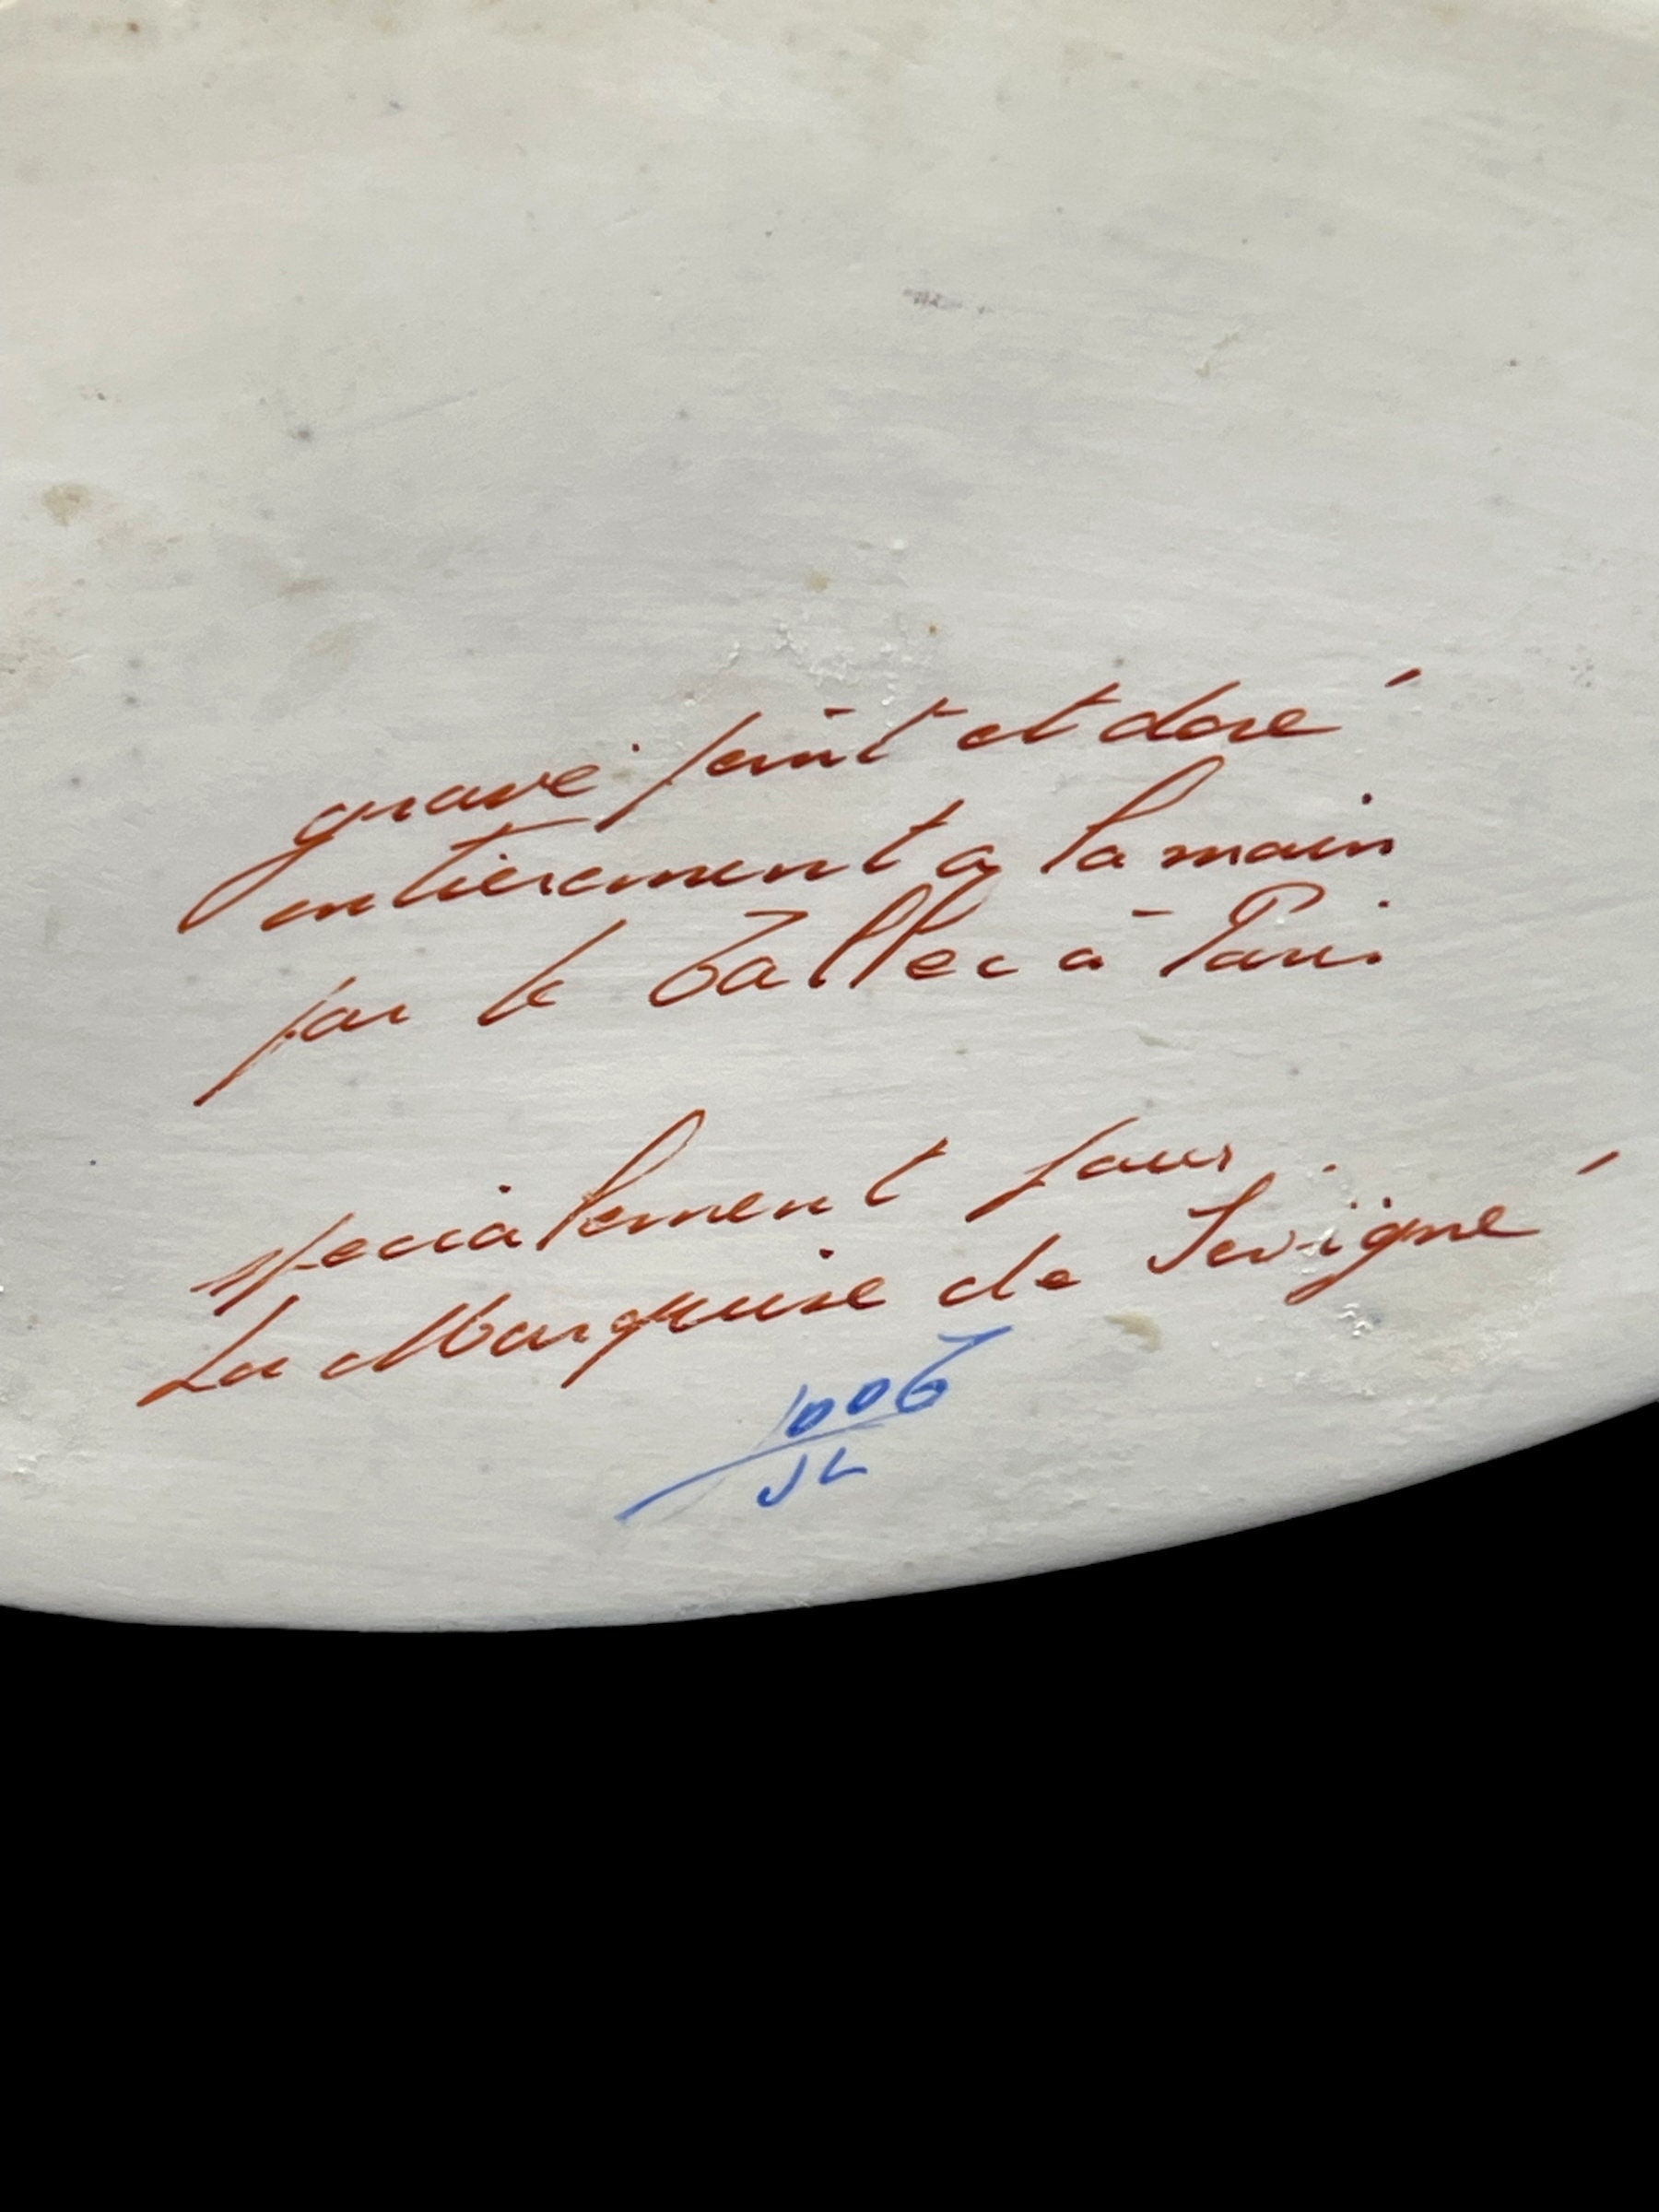 gravé peint et doré
entierement a la main
par le Tallec à Paris
specialement pour
La Marquise de Sévigné
1006
JL